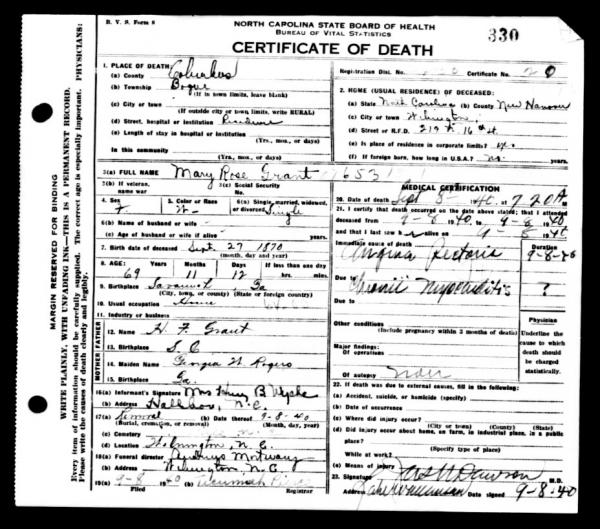 N. C. V. S. Form 8
NORTH CAROLINA STATE BOARD OF HEALTH
BUREAU OF VITAL STATISTICS
330
CERTIFICATE OF DEATH
MARGIN RESERVED FOR BINDING
WRITE PLAINLY, WITH UNFADING INK—THIS IS A PERMANENT RECORD.
Every item of information should be carefully supplied. The correct age is especially important. PHYSICIANS:
Please write the causes of death clearly and legibly.
1. PLACE OF DEATH:
(a) County Columbus
(b) Township Bogue
(If in town limits, leave blank)
(c) City or town
(If outside city or town limits, write RURAL)
(d) Street, hospital or institution Residence
(e) Length of stay in hospital or institution
(Yrs., mos. or days)
In this community
(Yrs., mos. or days)
Registration Dist. No. Certificate No. 20
2. HOME (USUAL RESIDENCE) OF DECEASED:
(a) State North Carolina (b) County New Hanover
(c) City or town Wilmington,
(d) Street or R.F.D. 219 N. 16th St
(e) Is place of residence in corporate limits? yes
(f) If foreign born, how long in U.S.A.? no. years
3(a) FULL NAME Mary Rose Grant 1653
3(b) If veteran, name war
3(c) Social Security No.
4. Sex F
5. Color or Race W
6(a) Single, married, widowed, or divorced Single
6(b) Name of husband or wife
6(c) Age of husband or wife if alive
7. Birth date of deceased Sept. 27 1870
(month, day and year)
8. AGE: Years 69 Months 11 Days 12 If less than one day hrs. min.
9. Birthplace Savannah, Ga
(City, town, or county) (State or foreign country)
10. Usual occupation
11. Industry or business
FATHER
12. Name H. F. Grant
13. Birthplace S. C
MOTHER
14. Maiden Name Georgia W. Rogers
15. Birthplace Ga.
16(a) Informant's Signature Mrs B
(b) Address Hallsboro, N.C.
17(a) Removal (b) Date thereof 9-8-40
(Burial, cremation, or removal) (Month, day, year)
(c) Cemetery
(d) Location Wilmington, N.C.
18(a) Funeral director
(b) Address Wilmington, N.C.
19(a) 9-8 1940 (b)
Filed Registrar
MEDICAL CERTIFICATION
20. Date of death Sept 8- 1940, at 7 20 A M
21. I certify that death occurred on the date above stated; that I attended
deceased from 9-8 1940 to 9-8 1940
and that I last saw h alive on 9-8 1940
Immediate cause of death Duration
Angina Pectoris 9-8-40
Due to
Chronic Myocarditis ?
Due to
Other conditions
(Include pregnancy within 3 months of death)
Major findings:
Of operations
Of autopsy
Physician
Underline the cause to which death should be charged statistically.
22. If death was due to external causes, fill in the following:
(a) Accident, suicide, or homicide (specify)
(b) Date of occurrence
(c) Where did injury occur?
(City or town) (County) (State)
(d) Did injury occur about home, on farm, in industrial place, in a public place?
(Specify type of place)
While at work?
(e) Means of injury
23. Signature Dawson M.D.
Address Lake Waccamaw Date signed 9-8-40